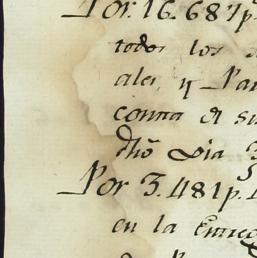 Por 16.687p
todos los
ales y Pa
conna el su
dho Dia 3
Por 3.481p.
en la Entreg